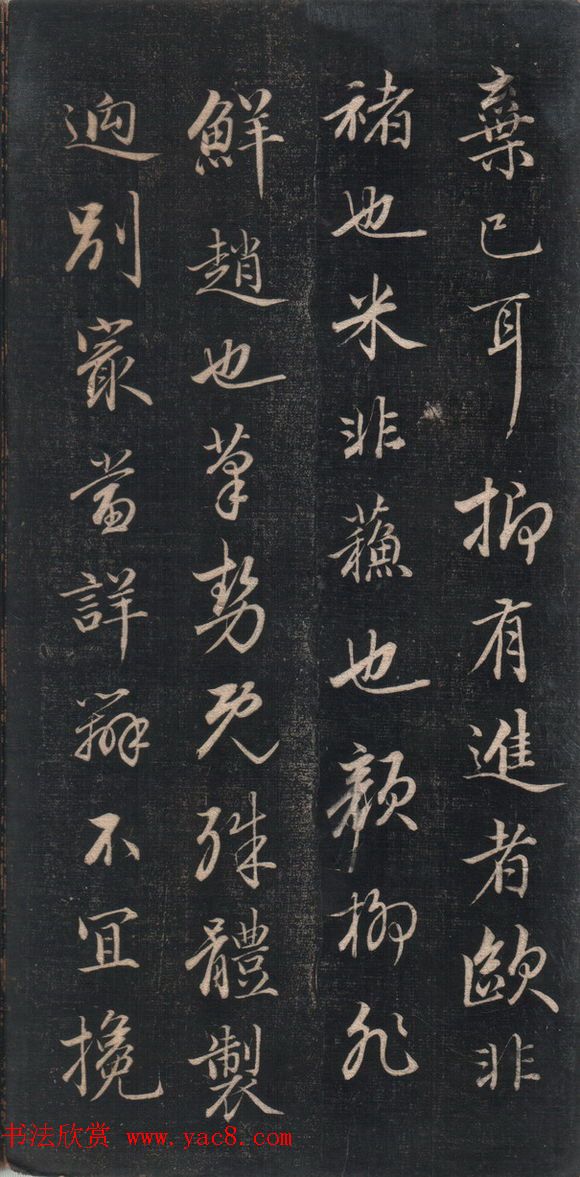 棄已耳抑有進者歐非
褚也米非蘇也顏柳非
鮮趙也筆勢既殊體製
迥別叢當詳辨不宜攙
书法欣赏 www.yac8.com